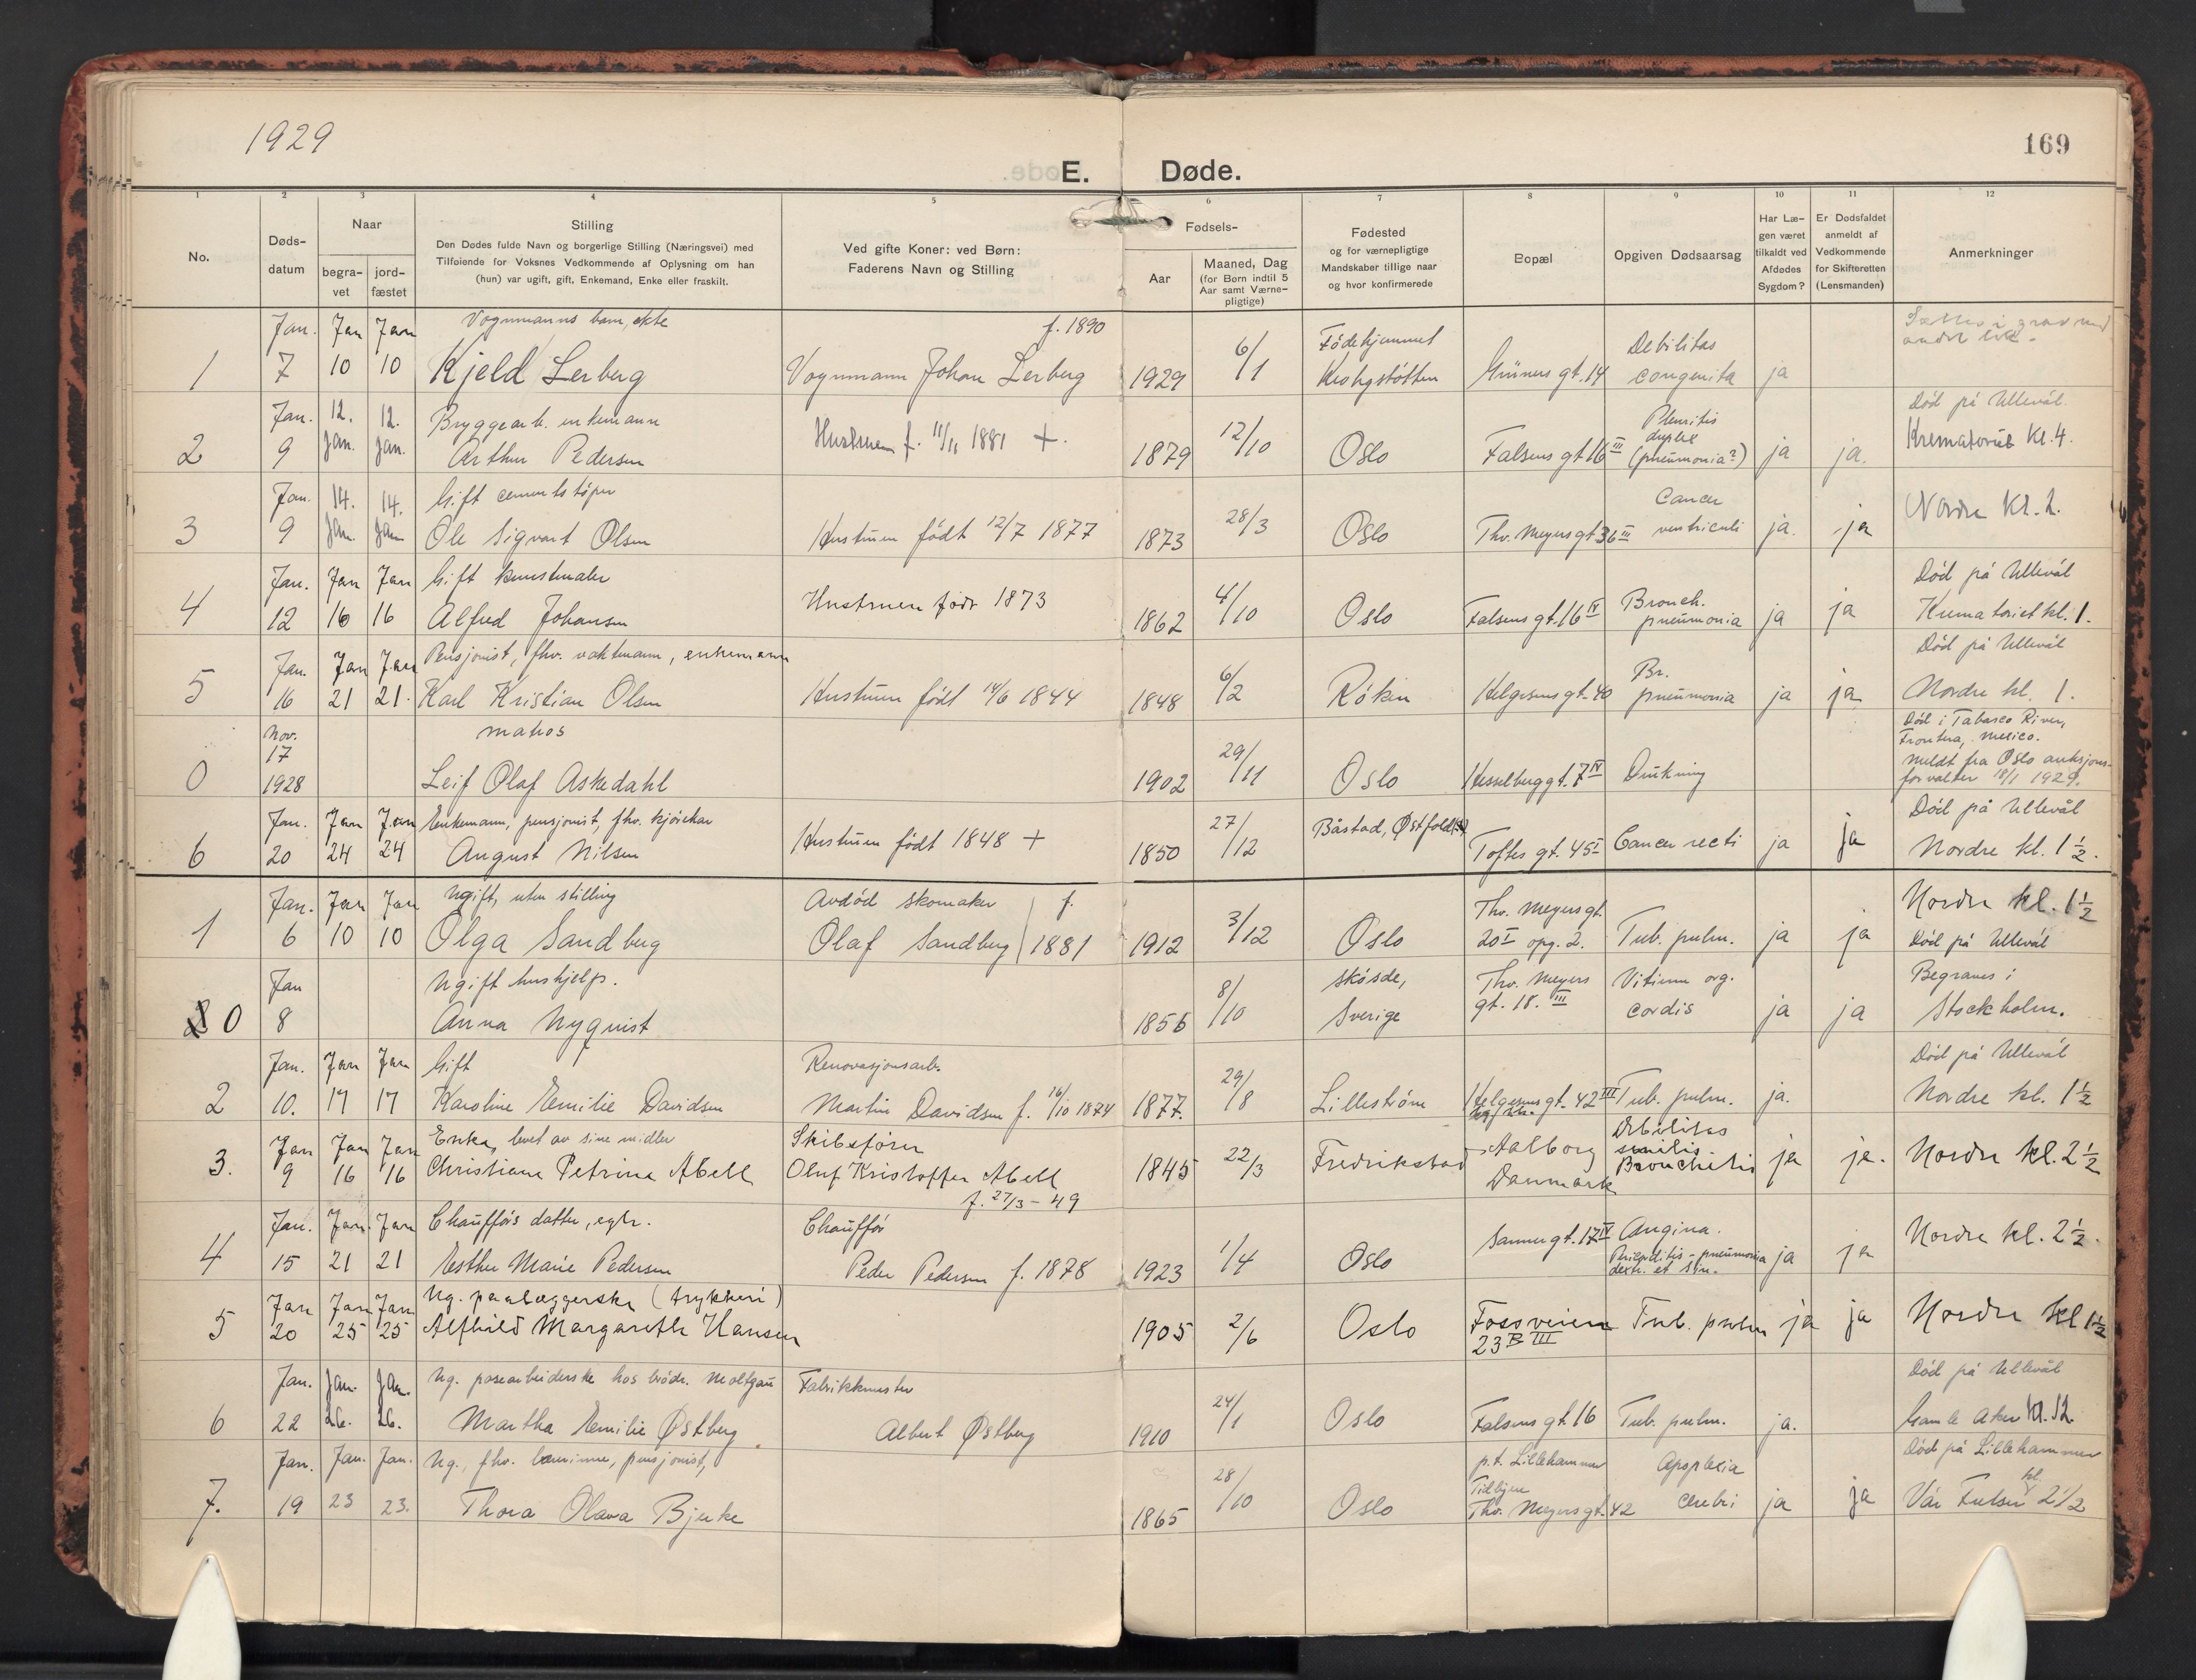 1929
169
E. Døde.
1 2 3 4 5 6 7 8 9 10 11 12
No.
Døds-
datum
Naar
begra-
vet
jord-
fæstet
Stilling
Den Dødes fulde Navn og borgerlige Stilling (Næringsvei) med
Tilføiende for Voksnes Vedkommende af Oplysning om han
(hun) var ugift, gift, Enkemand, Enke eller fraskilt.
Ved gifte Koner: ved Børn:
Faderens Navn og Stilling
Fødsels-
Aar
Maaned, Dag
(for Børn indtil 5
Aar samt Værne-
pligtige)
Fødested
og for værnepligtige
Mandskaber tillige naar
og hvor konfirmerede
Bopæl
Opgiven Dødsaarsag
Har Læ-
gen været
tilkaldt ved
Afdødes
Sygdom?
Er Dødsfaldet
anmeldt af
Vedkommende
for Skifteretten
(Lensmanden)
Anmerkninger
Jan. Jan Jan Vognmanns barn, ekte f. 1890 6/1 Fødehjemmet Debilitas
1 7 10 10 Kjeld Lerberg Vognmann Johan Lerberg 1929 Grüners gt. 14 congenita ja
Jan. 12. 12. Bryggearb. enkemann 12/10 Død på Ullevål.
2 9 Jan. Jan. Arthur Pedersen Hustruen f. 11/11 1881 +. 1879 Oslo Falsens gt 16 III (pneumonia?) ja ja. Krematoriet kl. 4.
Jan. 14. 14. Gift cementstøper 28/3 Cancer
3 9 Jan. Jan Ole Sigvart Olsen Hustruen født 12/7 1877 1873 Oslo Thv. Meyers gt 36 III ventriculi ja. ja Nordre Kl. 2.
Jan. Jan Jan Gift kunstmaler 4/10 Bronch. Død på Ullevål
4 12 16 16 Alfred Johansen Hustruen født 1873 1862 Oslo Falsens gt. 16 IV pneumonia ja ja Krematoriet kl. 1.
Jan. Jan Jan Pensjonist, fhv. vaktmann, enkemann 6/2 Br. Død på Ullevål
5 16 21 21. Karl Kristian Olsen Hustruen født 14/6 1844 1848 Røken Helgesens gt. 40 pneumonia ja ja Nordre kl. 1.
Nov. matros Død i Tabasco River,
17 29/11 Frontera, Mexico.
0 1928 Leif Olaf Askedahl 1902 Oslo Hesselberggt. 7 IV Drukning meldt fra Oslo auksjons-
forvalter 18/1 1929.
Jan. Jan Jan Enkemann, pensjonist, fhv. 27/12 Båstad, Østfold Død på Ullevål
6 20 24 24 August Nilsen Hustruen født 1848 + 1850 Toftes gt. 45 I Cancer recti ja ja Nordre kl. 1½.
Jan. Jan Jan Ugift, uten stilling Avdød skomaker f. 3/12 Thv. Meyers gt. Nordre kl. 1½
1 6 10 10 Olga Sandberg Olaf Sandberg 1881 1912 Oslo 20 I opg. 2. Tub. pulm. ja ja Død på Ullevål
Jan Ugift hushjelp. 8/10 Skøsde, Thv. Meyers Vitium org. Begraves i
0 8 Anna Nyqvist 1856 Sverige gt. 18. III cordis ja ja Stockholm.
Jan. Jan Jan Gift Renovasjonsarb. 29/8 Død på Ullevål
2 10. 17 17 Karoline Emilie Davidsen Martin Davidsen f. 16/10 1874 1877. Lillestrøm Helgesens gt. 42 III Tub. pulm. ja. Nordre kl. 1½
Jan Jan Jan Enke, levet av sine midler Skibsfører 22/3 Aalborg Debilitas senilis.
3. 9 16 16 Christiane Petrine Abell Oluf Kristoffer Abell 1845 Fredrikstad Danmark Bronchitis ja ja. Nordre kl. 2½
f. 27/3 - 49
Jan. Jan. Jan Chaufførs datter, egte. Chauffør 1/4 Sannergt. 17 IV Angina. Nordre kl. 2½.
4 15 21 21 Esther Marie Pedersen Peder Pedersen f. 1878 1923 Oslo pneumonia dextr. et sin. ja ja
Jan Jan Jan Ug. paalæggerske (trykkeri)
5 20 25 25 Alfhild Margarethe Hansen 1905 2/6 Oslo Fossveien Tub. pulm ja ja Nordre kl 1½
23 B III
Jan. Jan. Jan. Ug. posearbeiderske hos brødr. Fabrikkmester 24/1 Død på Ullevål
6 22 26. 26. Martha Emilie Østberg Albert Østberg 1910 Oslo Falsens gt. 16 Tub. pulm. ja. Gamle Aker kl. 12.
Jan. Jan. Jan. Ug., fhv. lærerinne, pensjonist, 28/10 p.t. Lillehammer Apoplexia Død på Lillehammer
7. 19 23 23. Thora Olava Bjerke 1865 Oslo Thv. Meyers gt. 42 cerebri ja ja Vår Frelser kl. 2½